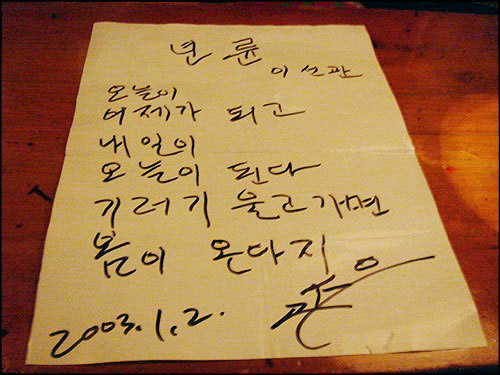 년 륜
이 선 관
오늘이
어제가 되고
내일이
오늘이 된다
기러기 물고가면
봄이 온다지
2003.1.2.